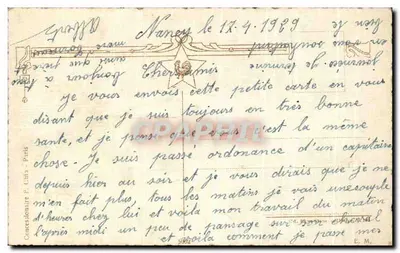 Nancy le 17.4.1939
Chers amis
je vous envois cette petite carte en vous
disant que je suis toujours en très bonne
santé, et je pense que vous c'est la même
chose. Je suis passé ordonance d'un capitaine
depuis hier au soir et je vous dirais que je ne
m'en fait plus, tous les matins je vais une couple
d'heures chez lui et voila mon travail du matin
l'après midi un peu de pansage sur son cheval
et voila comment je passe mes
journées. Je termine
en vous souhaitant
bien le
bonjour à tous
ainsi que
Albert
E. M.